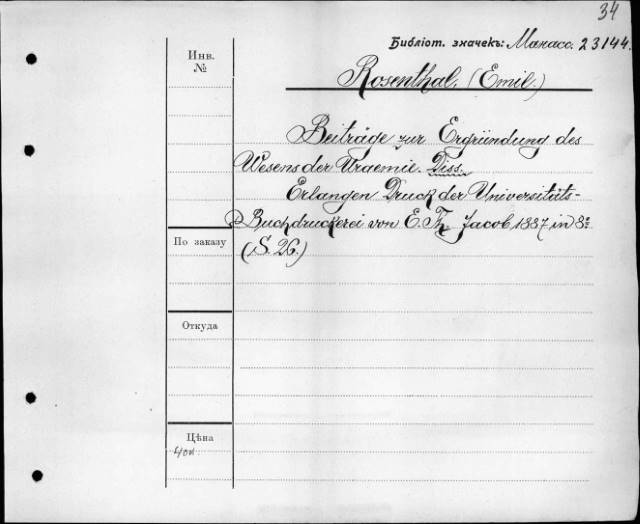 34
Библіот. значекъ: Манасс. 23144.
Инв.
№
Rosenthal, (Emil.)
Beiträge zur Ergründung des
Wesens der Uraemie. Diss.
Erlangen Druck der Universitäts-
Buchdruckerei von E. Th. Jacob 1887 in 8º
(S. 26.)
По заказу
Откуда
Цѣна
40к.